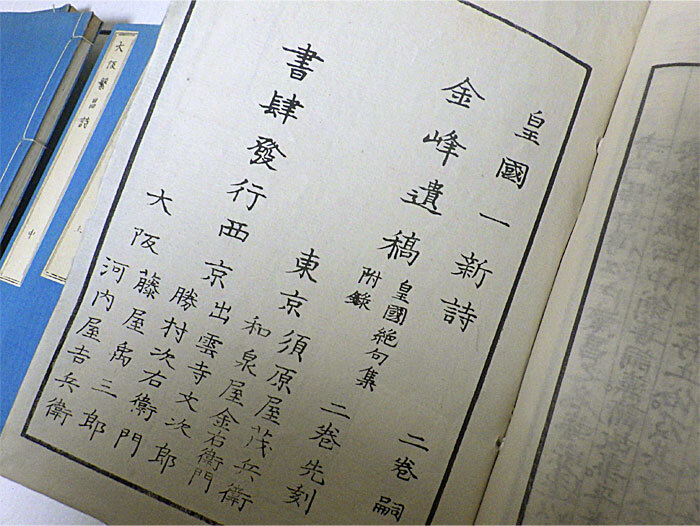 皇國一新詩 二卷嗣
金峰遺稿 皇國絕句集 附錄 二卷先刻
東京須原屋茂兵衛
和泉屋金右衛門
書肆發行 西京出雲寺文次郎
勝村次右衛門
大阪藤屋禹三郎
河內屋吉兵衛
大阪繁昌詩
上
中